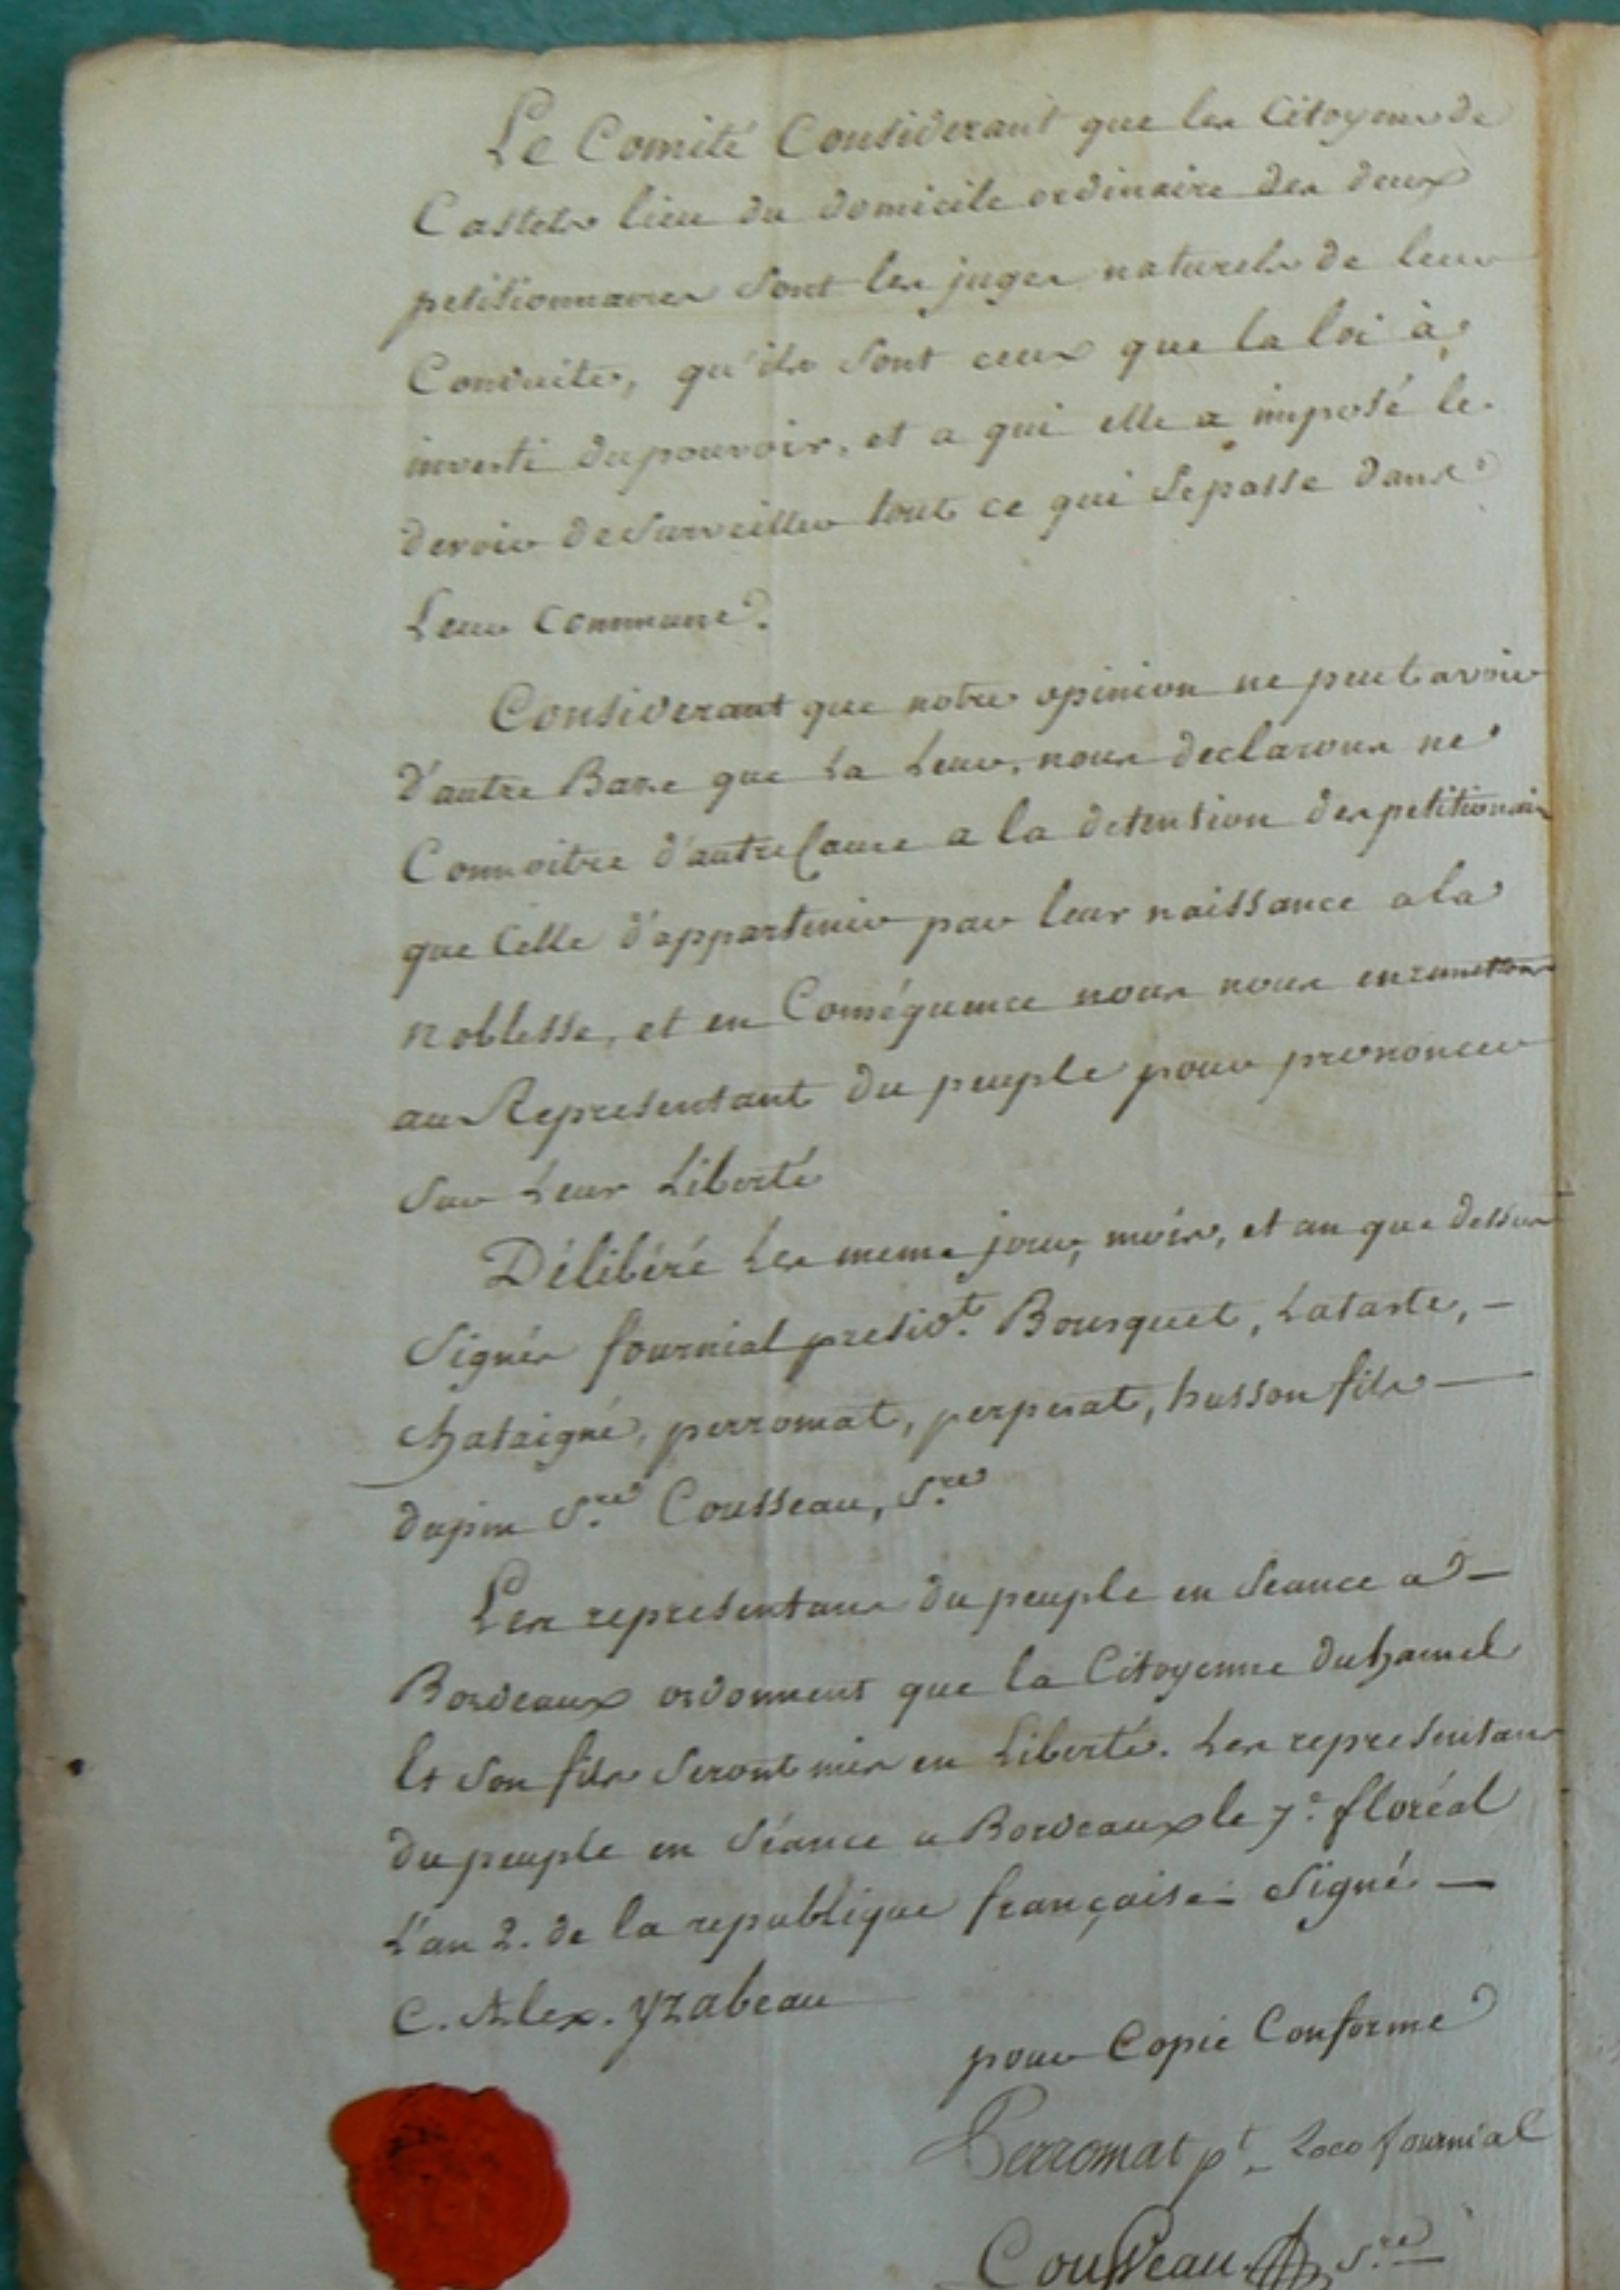 Le Comité Considerant que les Citoyens de
Castets lieu du domicile ordinaire des deux
petitionnaires sont les juges naturels de leur
Conduite, qu'ils sont ceux que la loi à
investi du pouvoir, et a qui elle a imposé le
devoir de surveiller tout ce qui se passe dans
Leur Commune.
Considerant que notre opinion ne peut avoir
d'autre Base que La Leur, nous declarons ne
Connoitre d'autre Cause a la detention des petitionnair
que Celle d'appartenir par leur naissance a la
noblesse, et en Conséquence nous nous en remettons
au Representant du peuple pour prononcer
sur Leur Liberté
Délibéré Les meme jour, mois, et an que dessus
Signés fournial presidt. Bousquet, Lataste, -
Chataigné, perromat, perpezat, husson fils —
dupin S.re Cousseau, S.re
Les representans du peuple en seance a -
Bordeaux ordonnent que la Citoyenne duhamel
Et son fils seront mis en Liberté. Les representans
du peuple en séance a Bordeaux le 7.e floréal
L'an 2. de la republique française. Signé —
C. Alex. yzabeau
pour Copie Conforme
Perromat pt. Loco fournial
Cousseau S.re